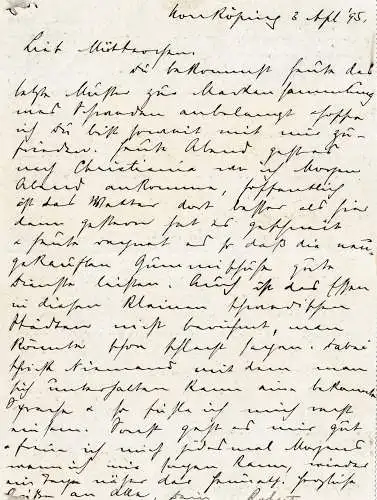 Norrköping 3 Apl '95.
Lieb Mütterchen.
Du bekommst heute das
letzte Muster zur Markensammlung
was Schweden anbelangt & hoffe
ich Du bist soweit mit mir zu-
frieden. Heute Abend geht es
nach Christiania wo ich Morgen
Abend ankomme, hoffentlich
ist das Wetter dort besser als hier
denn gestern hat es geschneit
& heute regnet es so daß die neu
gekauften Gummischuhe gute
Dienste leisten. Auch ist das Essen
in diesen kleinen schwedischen
Städten nicht berühmt, man
könnte schon schlecht sagen. Dabei
Niemand mit dem man
sich unterhalten kann eine bekannte
Sprache & so fühle ich mich recht
einsam. Sonst geht es mir gut
& freue ich mich jedesmal Morgens
wenn ich mir sagen kann, wieder
ein näher das
an Alle, Dein Robert